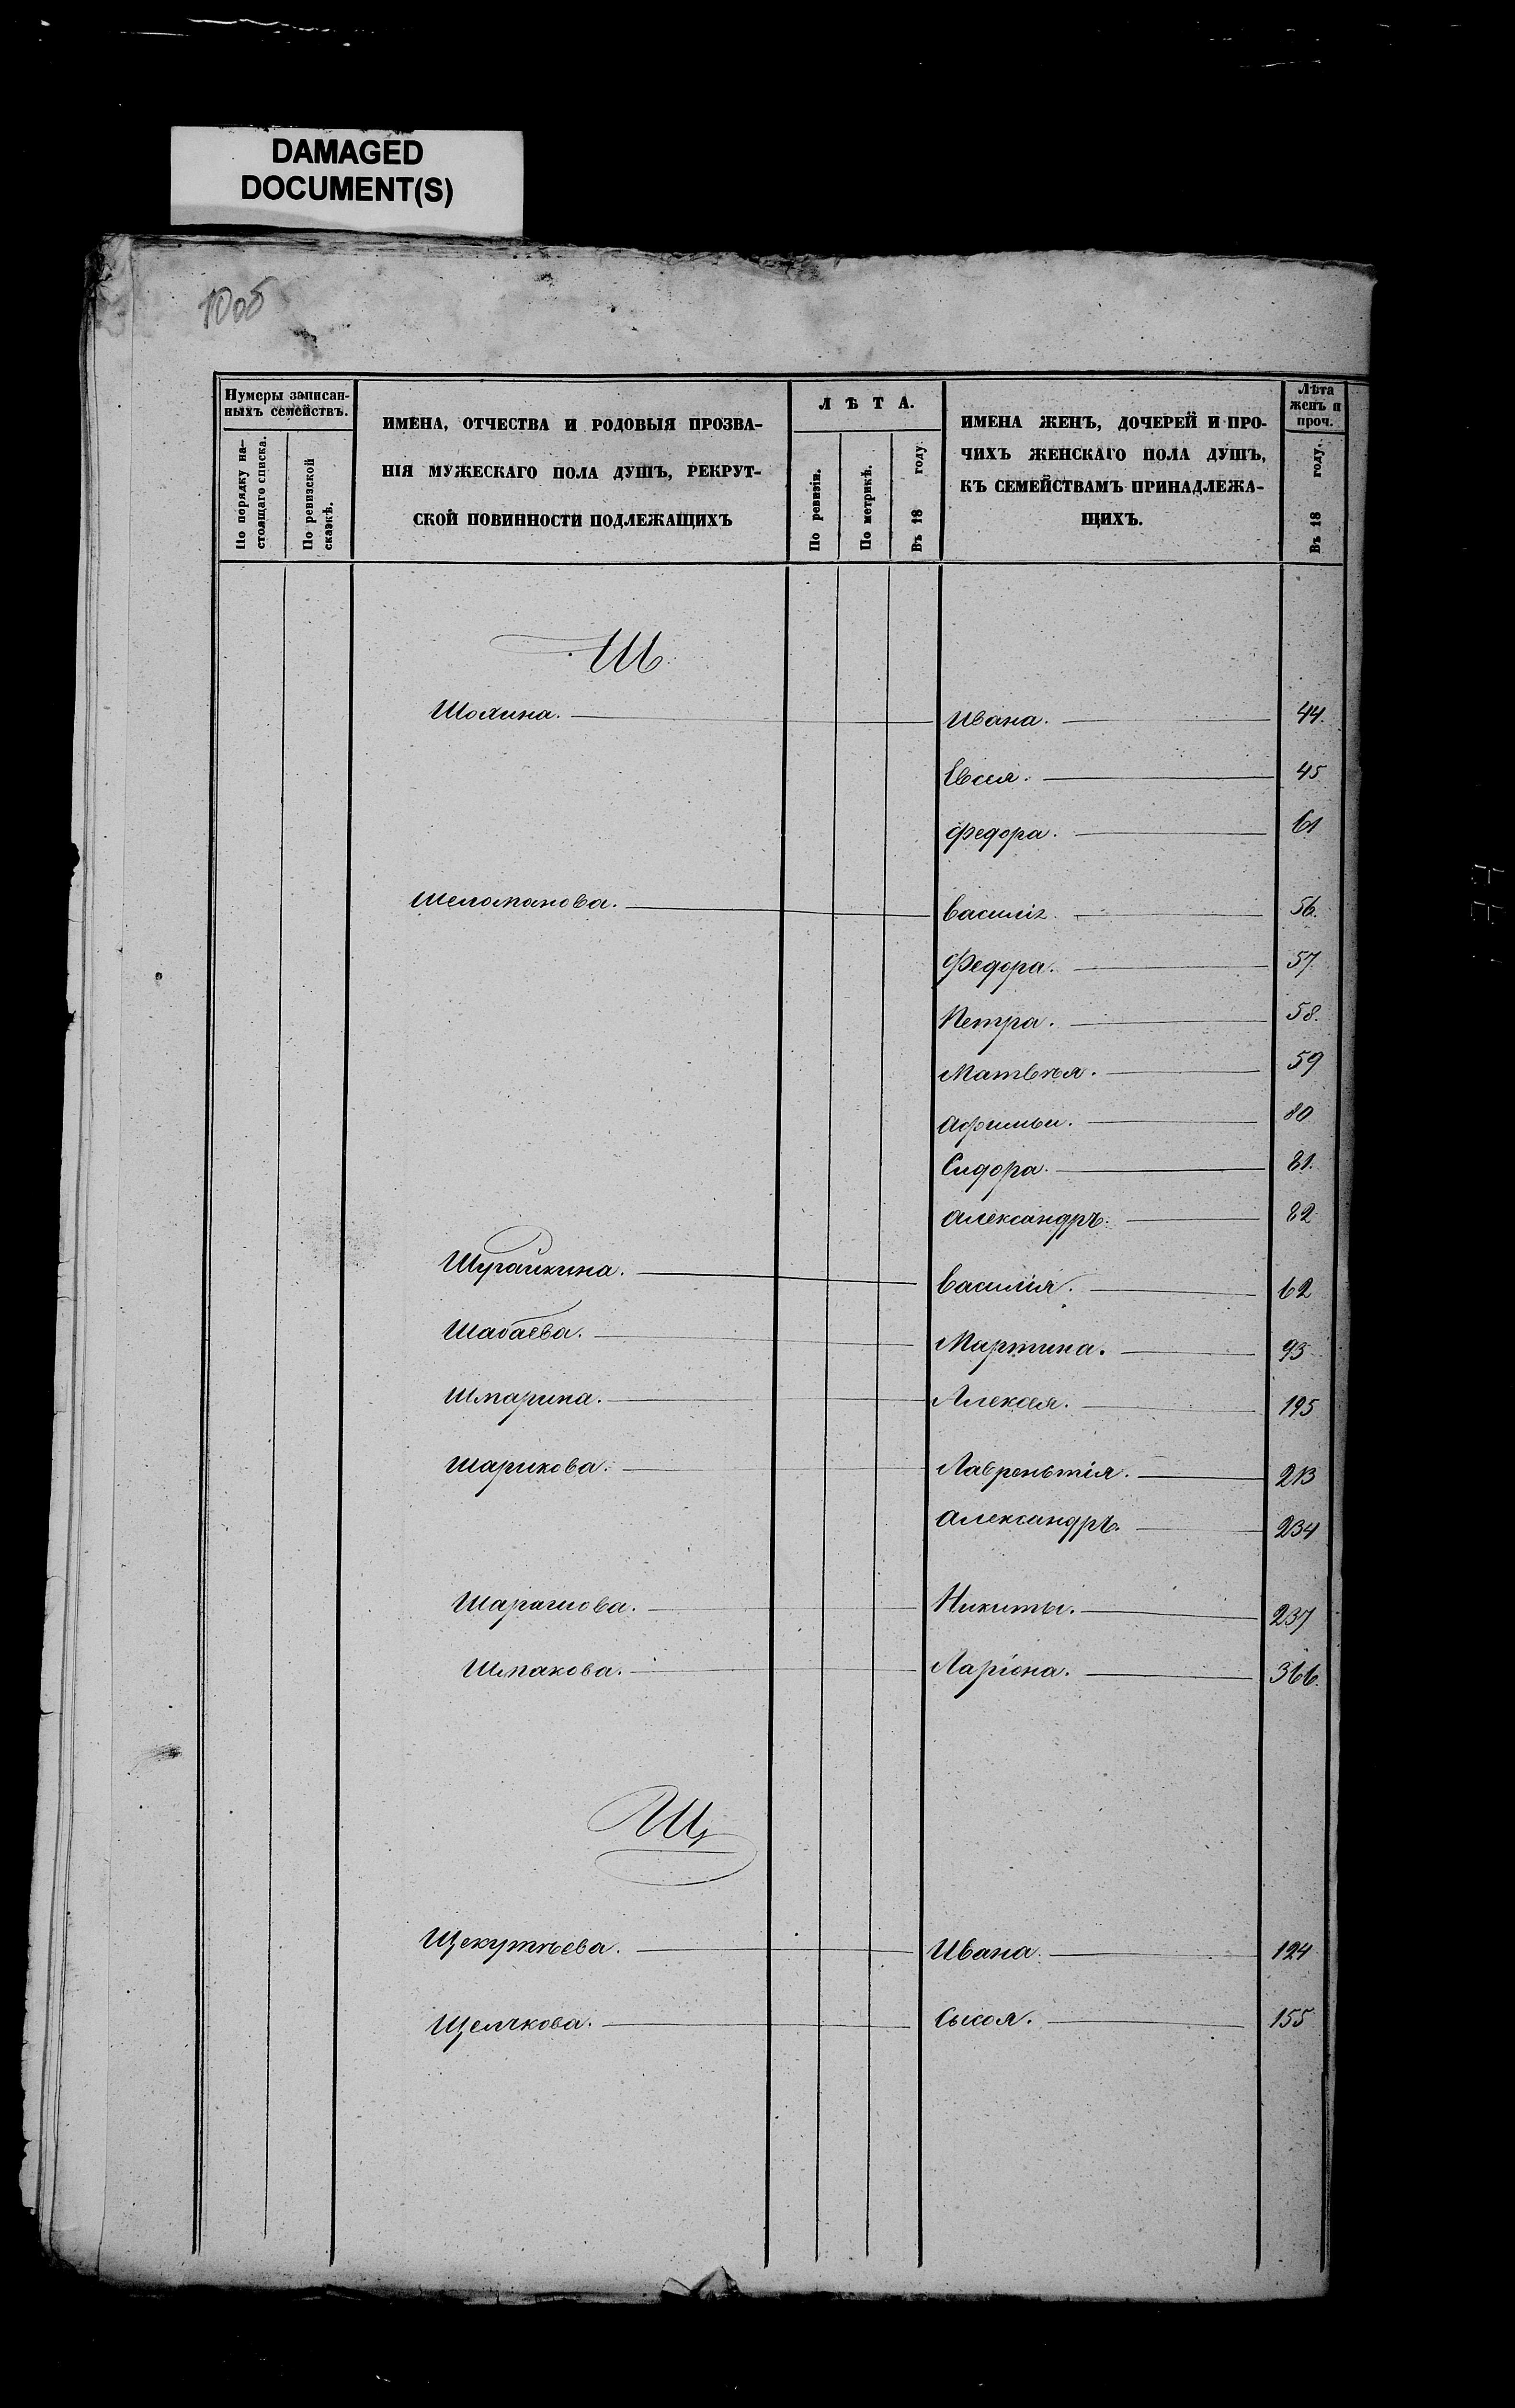 DAMAGED
DOCUMENT(S)
Нумеры записан-
ныхъ семействъ.
По порядку на-
стоящаго списка.
По ревизской
сказкѣ.
ИМЕНА, ОТЧЕСТВА И РОДОВЫЯ ПРОЗВА-
НІЯ МУЖЕСКАГО ПОЛА ДУШЪ, РЕКРУТ-
СКОЙ ПОВИННОСТИ ПОДЛЕЖАЩИХЪ
ЛѢТА.
По ревизіи.
По метрикѣ.
Въ 18 году.
ИМЕНА ЖЕНЪ, ДОЧЕРЕЙ И ПРО-
ЧИХЪ ЖЕНСКАГО ПОЛА ДУШЪ,
КЪ СЕМЕЙСТВАМЪ ПРИНАДЛЕЖА-
ЩИХЪ.
Лѣта
женъ и
проч.
Въ 18 году.
Ш
Ивана. 44.
Евсея. 45
Федора. 61
Шеломанова. Василія 56.
Федора. 57
Петра. 58.
Матвѣя. 59
80
Сидора. 81.
Александръ. 82
Василія. 62
Шабаева. Мартина. 93
Шмарина. Алексея. 195
Шарикова. Лавреньтія. 213
Александръ. 234
Никиты. 237
Шпакова. Ларіона. 366.
Щ
Щекутьева. Ивана. 124
Щелчкова. Сысоя. 155